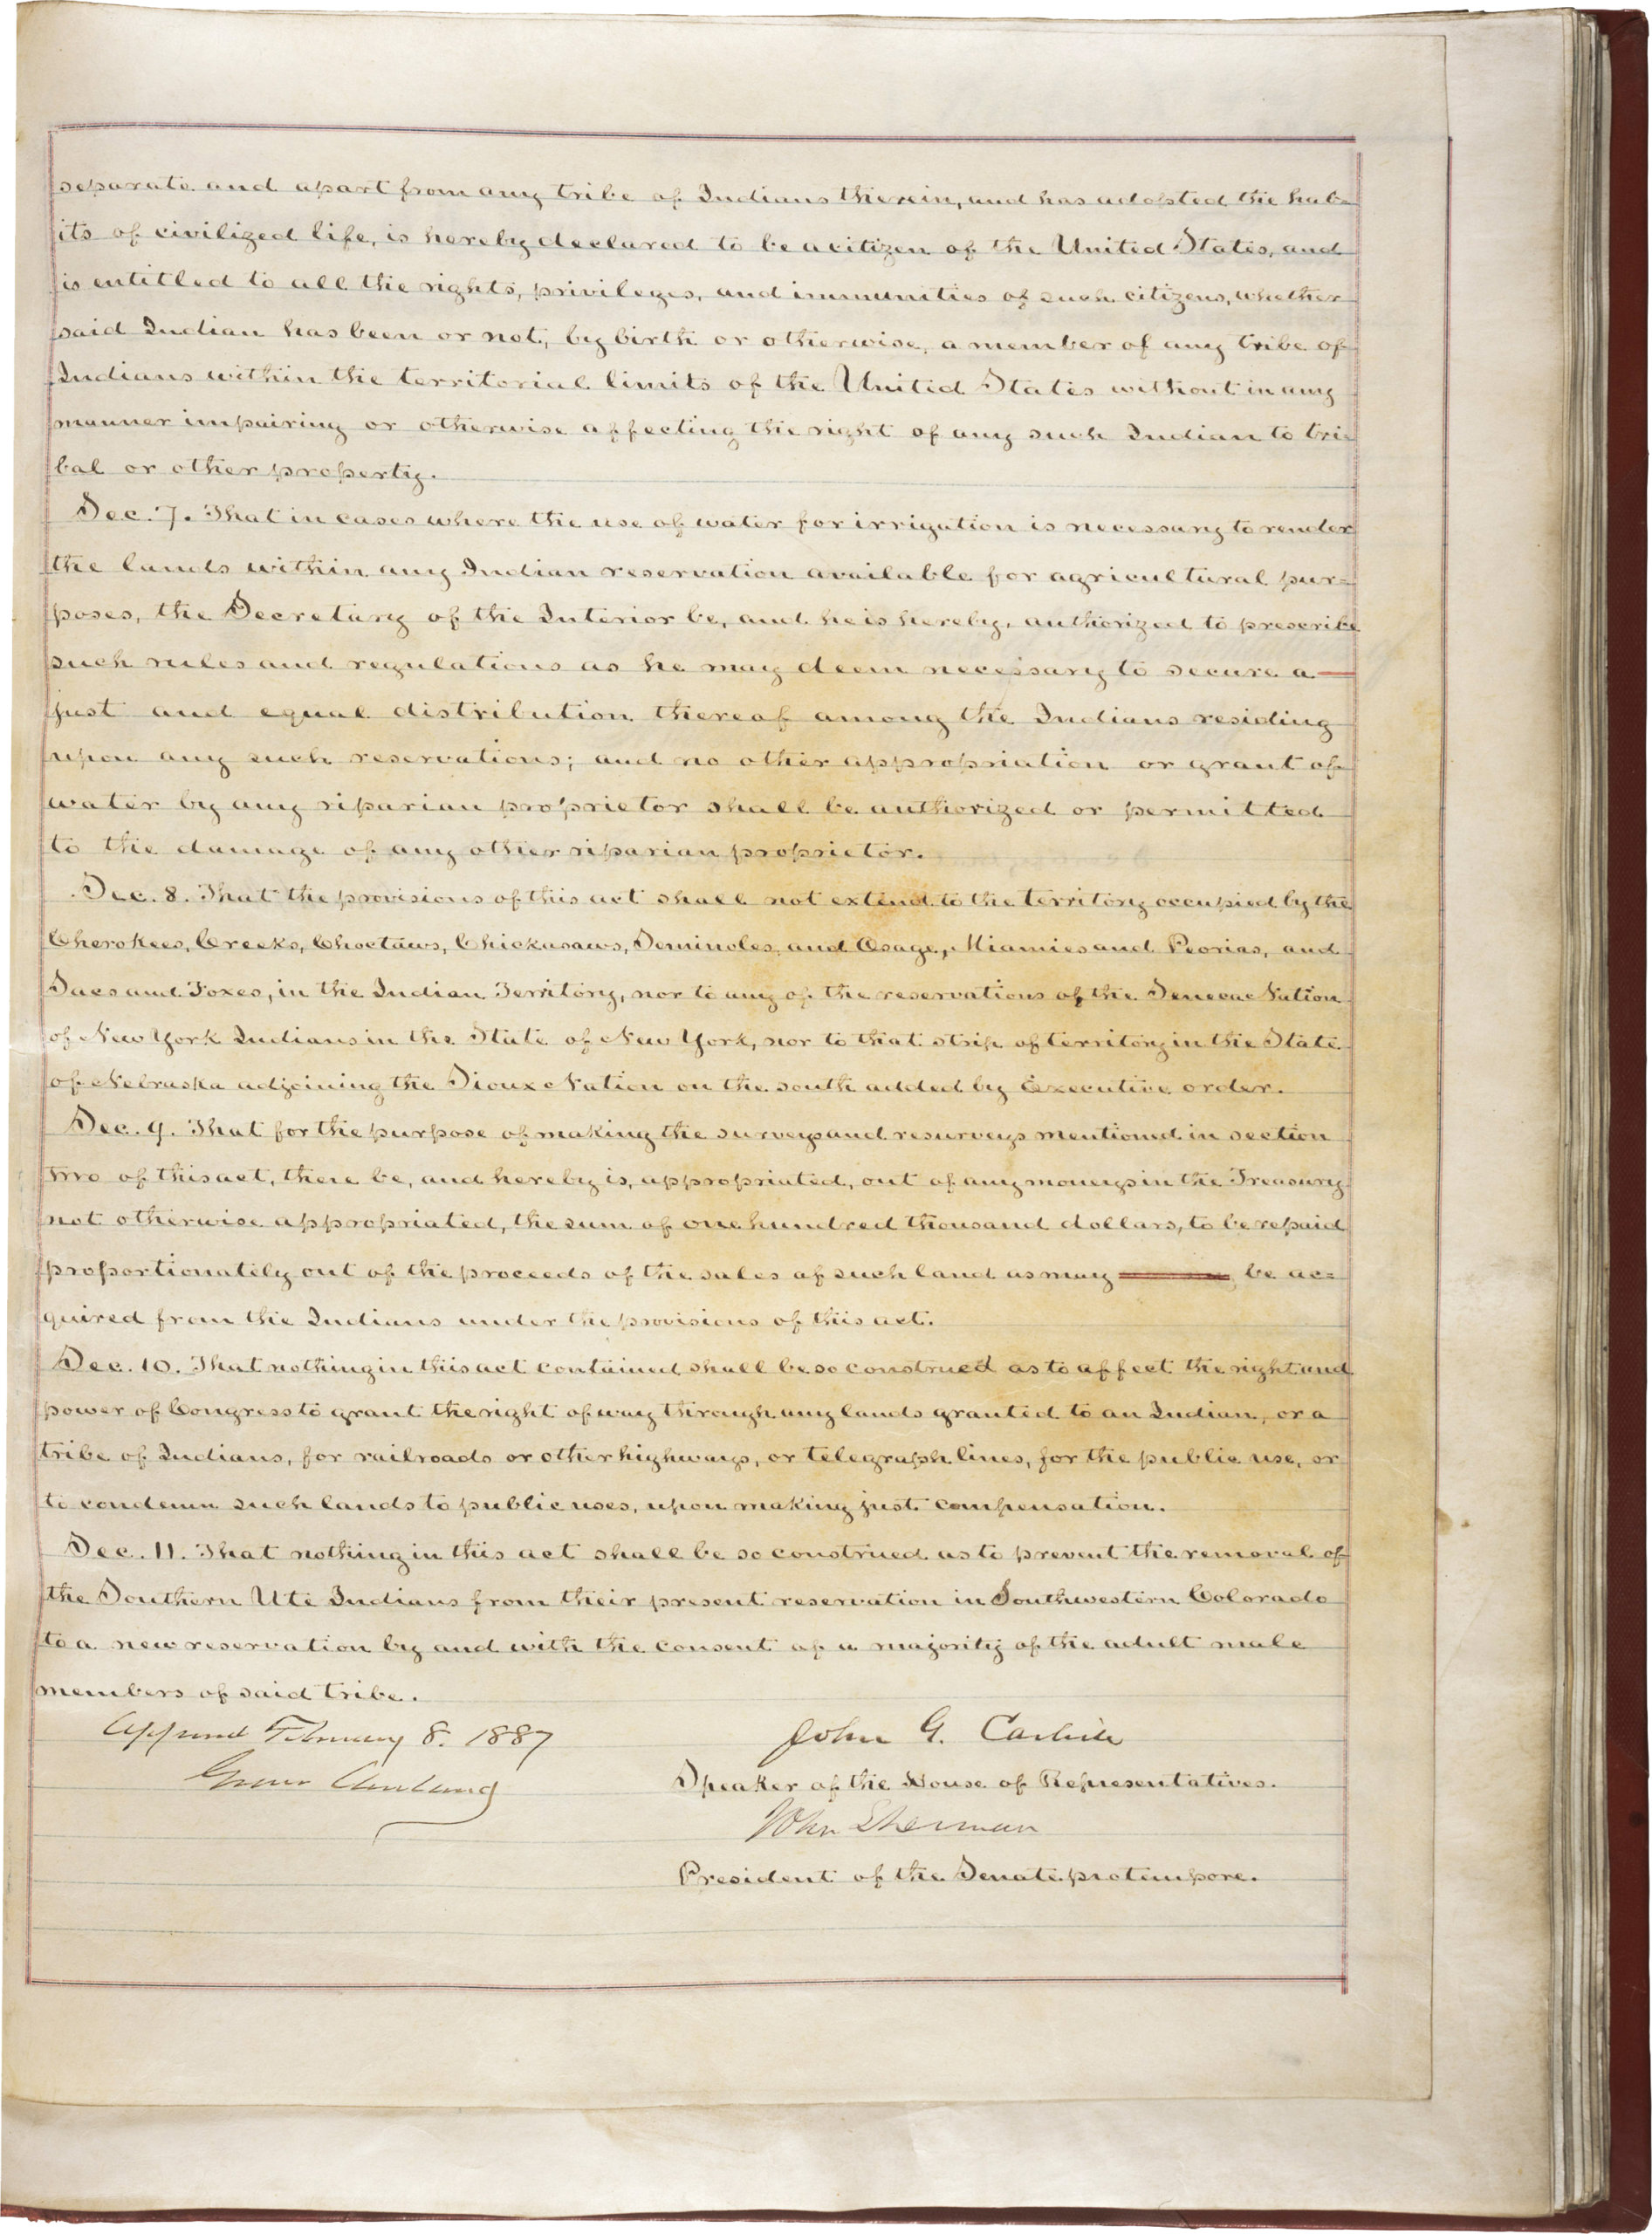 separate and apart from any tribe of Indians therein, and has adopted the hab-
its of civilized life, is hereby declared to be a citizen of the United States, and
is entitled to all the rights, privileges, and immunities of such citizens, whether
said Indian has been or not, by birth or otherwise, a member of any tribe of
Indians within the territorial limits of the United States without in any
manner impairing or otherwise affecting the right of any such Indian to tri-
bal or other property.
Sec. 7. That in cases where the use of water for irrigation is necessary to render
the lands within any Indian reservation available for agricultural pur-
poses, the Secretary of the Interior be, and he is hereby, authorized to prescribe
such rules and regulations as he may deem necessary to secure a
just and equal distribution thereof among the Indians residing
upon any such reservations; and no other appropriation or grant of
water by any riparian proprietor shall be authorized or permitted
to the damage of any other riparian proprietor.
Sec. 8. That the provisions of this act shall not extend to the territory occupied by the
Cherokees, Creeks, Choctaws, Chickasaws, Seminoles, and Osage, Miamies and Peorias, and
Sacs and Foxes, in the Indian Territory, nor to any of the reservations of the Seneca Nation
of New York Indians in the State of New York, nor to that strip of territory in the State
of Nebraska adjoining the Sioux Nation on the south added by Executive order.
Sec. 9. That for the purpose of making the surveys and resurveys mentioned in section
two of this act, there be, and hereby is, appropriated, out of any moneys in the Treasury
not otherwise appropriated, the sum of one hundred thousand dollars, to be repaid
proportionately out of the proceeds of the sales of such land as may be ac-
quired from the Indians under the provisions of this act.
Sec. 10. That nothing in this act contained shall be so construed as to affect the right and
power of Congress to grant the right of way through any lands granted to an Indian, or a
tribe of Indians, for railroads or other highways, or telegraph lines, for the public use, or
to condemn such lands to public uses, upon making just compensation.
Sec. 11. That nothing in this act shall be so construed as to prevent the removal of
the Southern Ute Indians from their present reservation in Southwestern Colorado
to a new reservation by and with the consent of a majority of the adult male
members of said tribe.
Approved February 8. 1887
John G. Carlisle
Grover Cleveland
Speaker of the House of Representatives.
John Sherman
President of the Senate pro tempore.